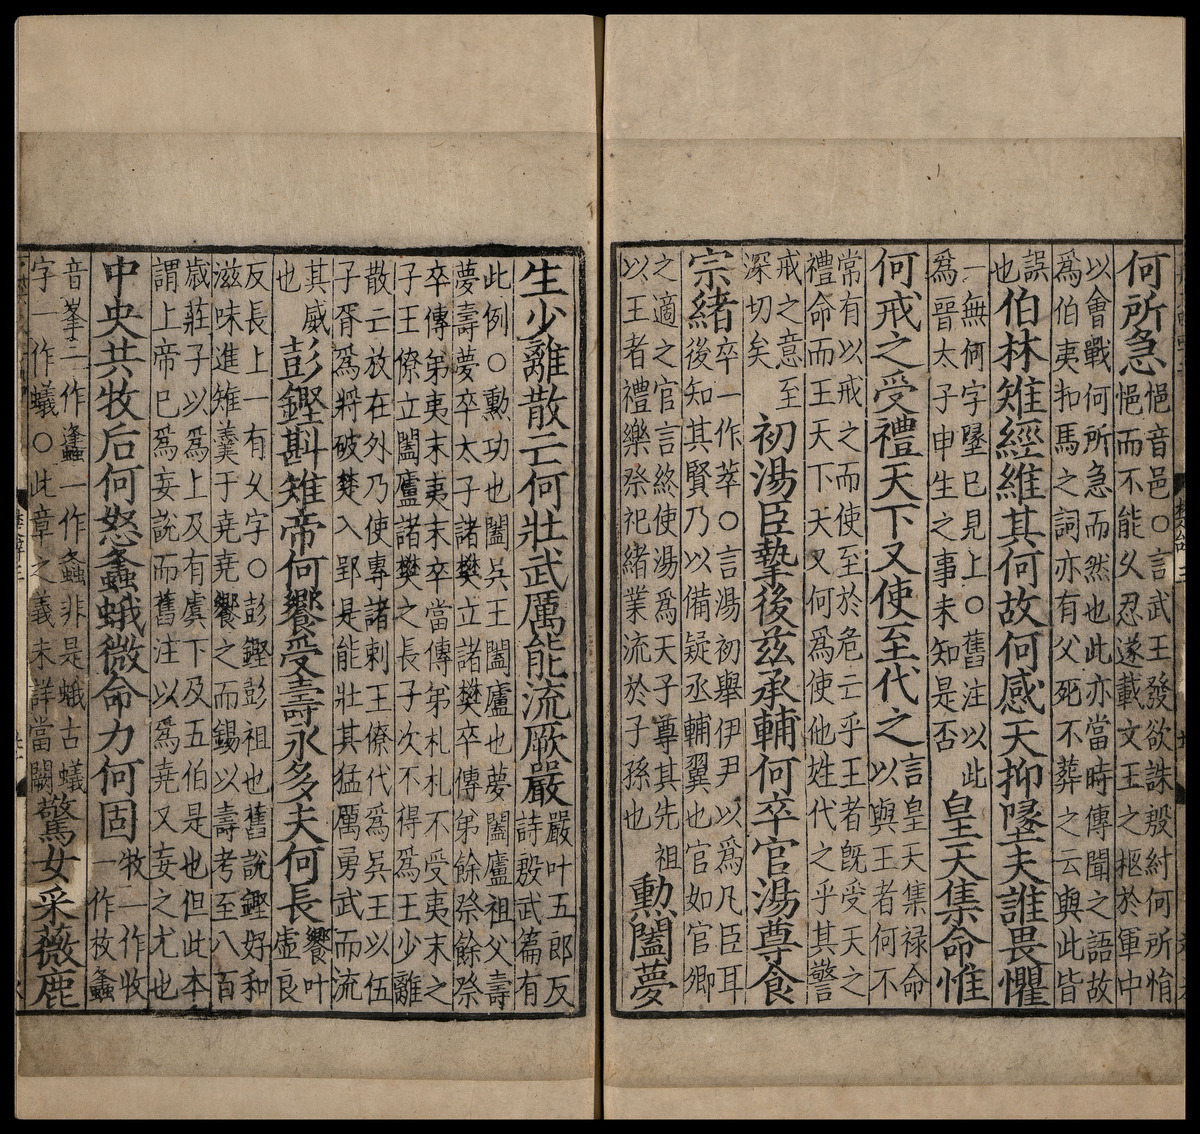 何所急悒音邑○言武王發欲誅殷紂何所悁
悒而不能久忍遂載文王之柩於軍中
以會戰何所急而然也此亦當時傳聞之語故
為伯夷扣馬之詞亦有父死不葬之云與此皆
誤
也伯林雉經維其何故何感天抑墜夫誰畏懼
一無何字墜已見上○舊注以此
為晉太子申生之事未知是否皇天集命惟
何戒之受禮天下又使至代之言皇天集禄命
以與王者何不
常有以戒之而使至於危亡乎王者旣受天之
禮命而王天下天又何為使他姓代之乎其警
戒之意至
深切矣初湯臣摯後兹承輔何卒官湯尊食
宗緒卒一作萃○言湯初舉伊尹以為凡臣耳
後知其賢乃以備疑丞輔翼也官如官卿
之適之官言終使湯為天子尊其先祖
以王者禮樂祭祀緒業流於子孫也勳闔夢
生少離散亡何壯武厲能流厥嚴嚴叶五郎反
詩殷武篇有
此例○勳功也闔吳王闔廬也夢闔廬祖父壽
夢壽夢卒太子諸樊立諸樊卒傳弟餘祭餘祭
卒傳弟夷末夷末卒當傳弟札札不受夷末之
子王僚立闔廬諸樊之長子次不得為王少離
散亡放在外乃使專諸刺王僚代為吳王以伍
子胥為將破楚入郢是能壯其猛厲勇武而流
其威
也彭鏗斟雉帝何饗受壽永多夫何長饗叶
虛良
反長上一有久字○彭鏗彭祖也舊說鏗好和
滋味進雉羹于堯堯饗之而錫以壽考至八百
歲莊子以為上及有虞下及五伯是也但此本
謂上帝已為妄說而舊注以為堯又妄之尤也
中央共牧后何怒螽蛾微命力何固牧二作收
一作枚螽
音峯二作蠭一作螽非是蛾古蟻
字一作蟻○此章之義未詳當闕驚女采薇鹿